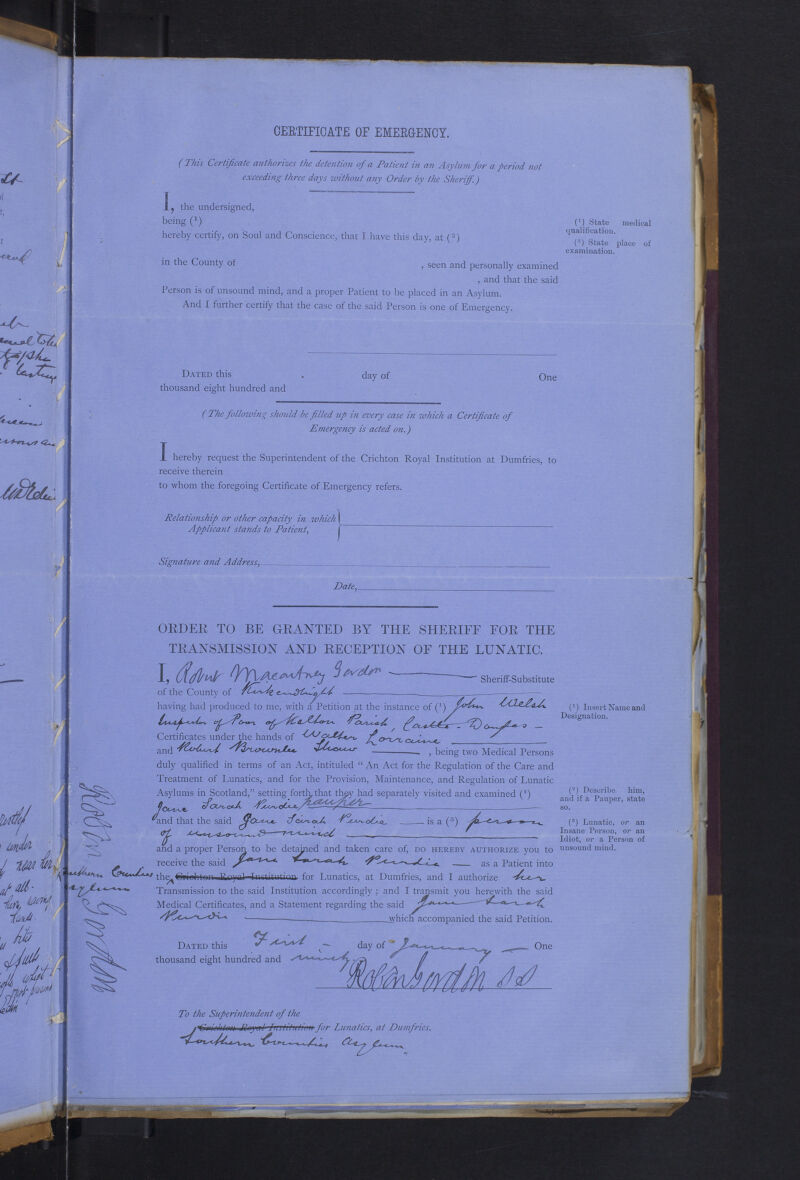 CERTIFICATE OF EMERGENCY.
(This Certificate authorizes the detention of a Patient in an Asylum for a period not
exceeding three days without any Order by the Sheriff.)
I, the undersigned,
being (¹)
hereby certify, on Soul and Conscience, that I have this day, at (²)
in the County of , seen and personally examined
, and that the said
Person is of unsound mind, and a proper Patient to be placed in an Asylum.
And I further certify that the case of the said Person is one of Emergency.
(¹) State medical
qualification.
(²) State place of
examination.
DATED this day of One
thousand eight hundred and
(The following should be filled up in every case in which a Certificate of
Emergency is acted on.)
I hereby request the Superintendent of the Crichton Royal Institution at Dumfries, to
receive therein
to whom the foregoing Certificate of Emergency refers.
Relationship or other capacity in which
Applicant stands to Patient,
Signature and Address,
Date,
ORDER TO BE GRANTED BY THE SHERIFF FOR THE
TRANSMISSION AND RECEPTION OF THE LUNATIC.
I, Robert Macartney Gordon Sheriff-Substitute
of the County of Kirkcudbright
having had produced to me, with a Petition at the instance of (¹) John Welsh
Inspector of Poor of Kelton Parish, Castle-Douglas
Certificates under the hands of Walter Lorraine
and Robert Brownlee Shaw , being two Medical Persons
duly qualified in terms of an Act, intituled "An Act for the Regulation of the Care and
Treatment of Lunatics, and for the Provision, Maintenance, and Regulation of Lunatic
Asylums in Scotland," setting forth that they had separately visited and examined (²)
Jane Sarah Purdie pauper
and that the said Jane Sarah Purdie is a (³) person
of unsound mind
and a proper Person to be detained and taken care of, DO HEREBY AUTHORIZE you to
receive the said Jane Sarah Purdie as a Patient into
Southern Counties the Crichton Royal Institution for Lunatics, at Dumfries, and I authorize her
Asylum Transmission to the said Institution accordingly; and I transmit you herewith the said
Medical Certificates, and a Statement regarding the said Jane Sarah
Purdie which accompanied the said Petition.
(¹) Insert Name and
Designation.
(²) Describe him,
and if a Pauper, state
so.
(³) Lunatic, or an
Insane Person, or an
Idiot, or a Person of
unsound mind.
Robt Gordon
DATED this First day of January One
thousand eight hundred and ninety
Robt Gordon SS
To the Superintendent of the
Crichton Royal Institution for Lunatics, at Dumfries.
Southern Counties Asylum.